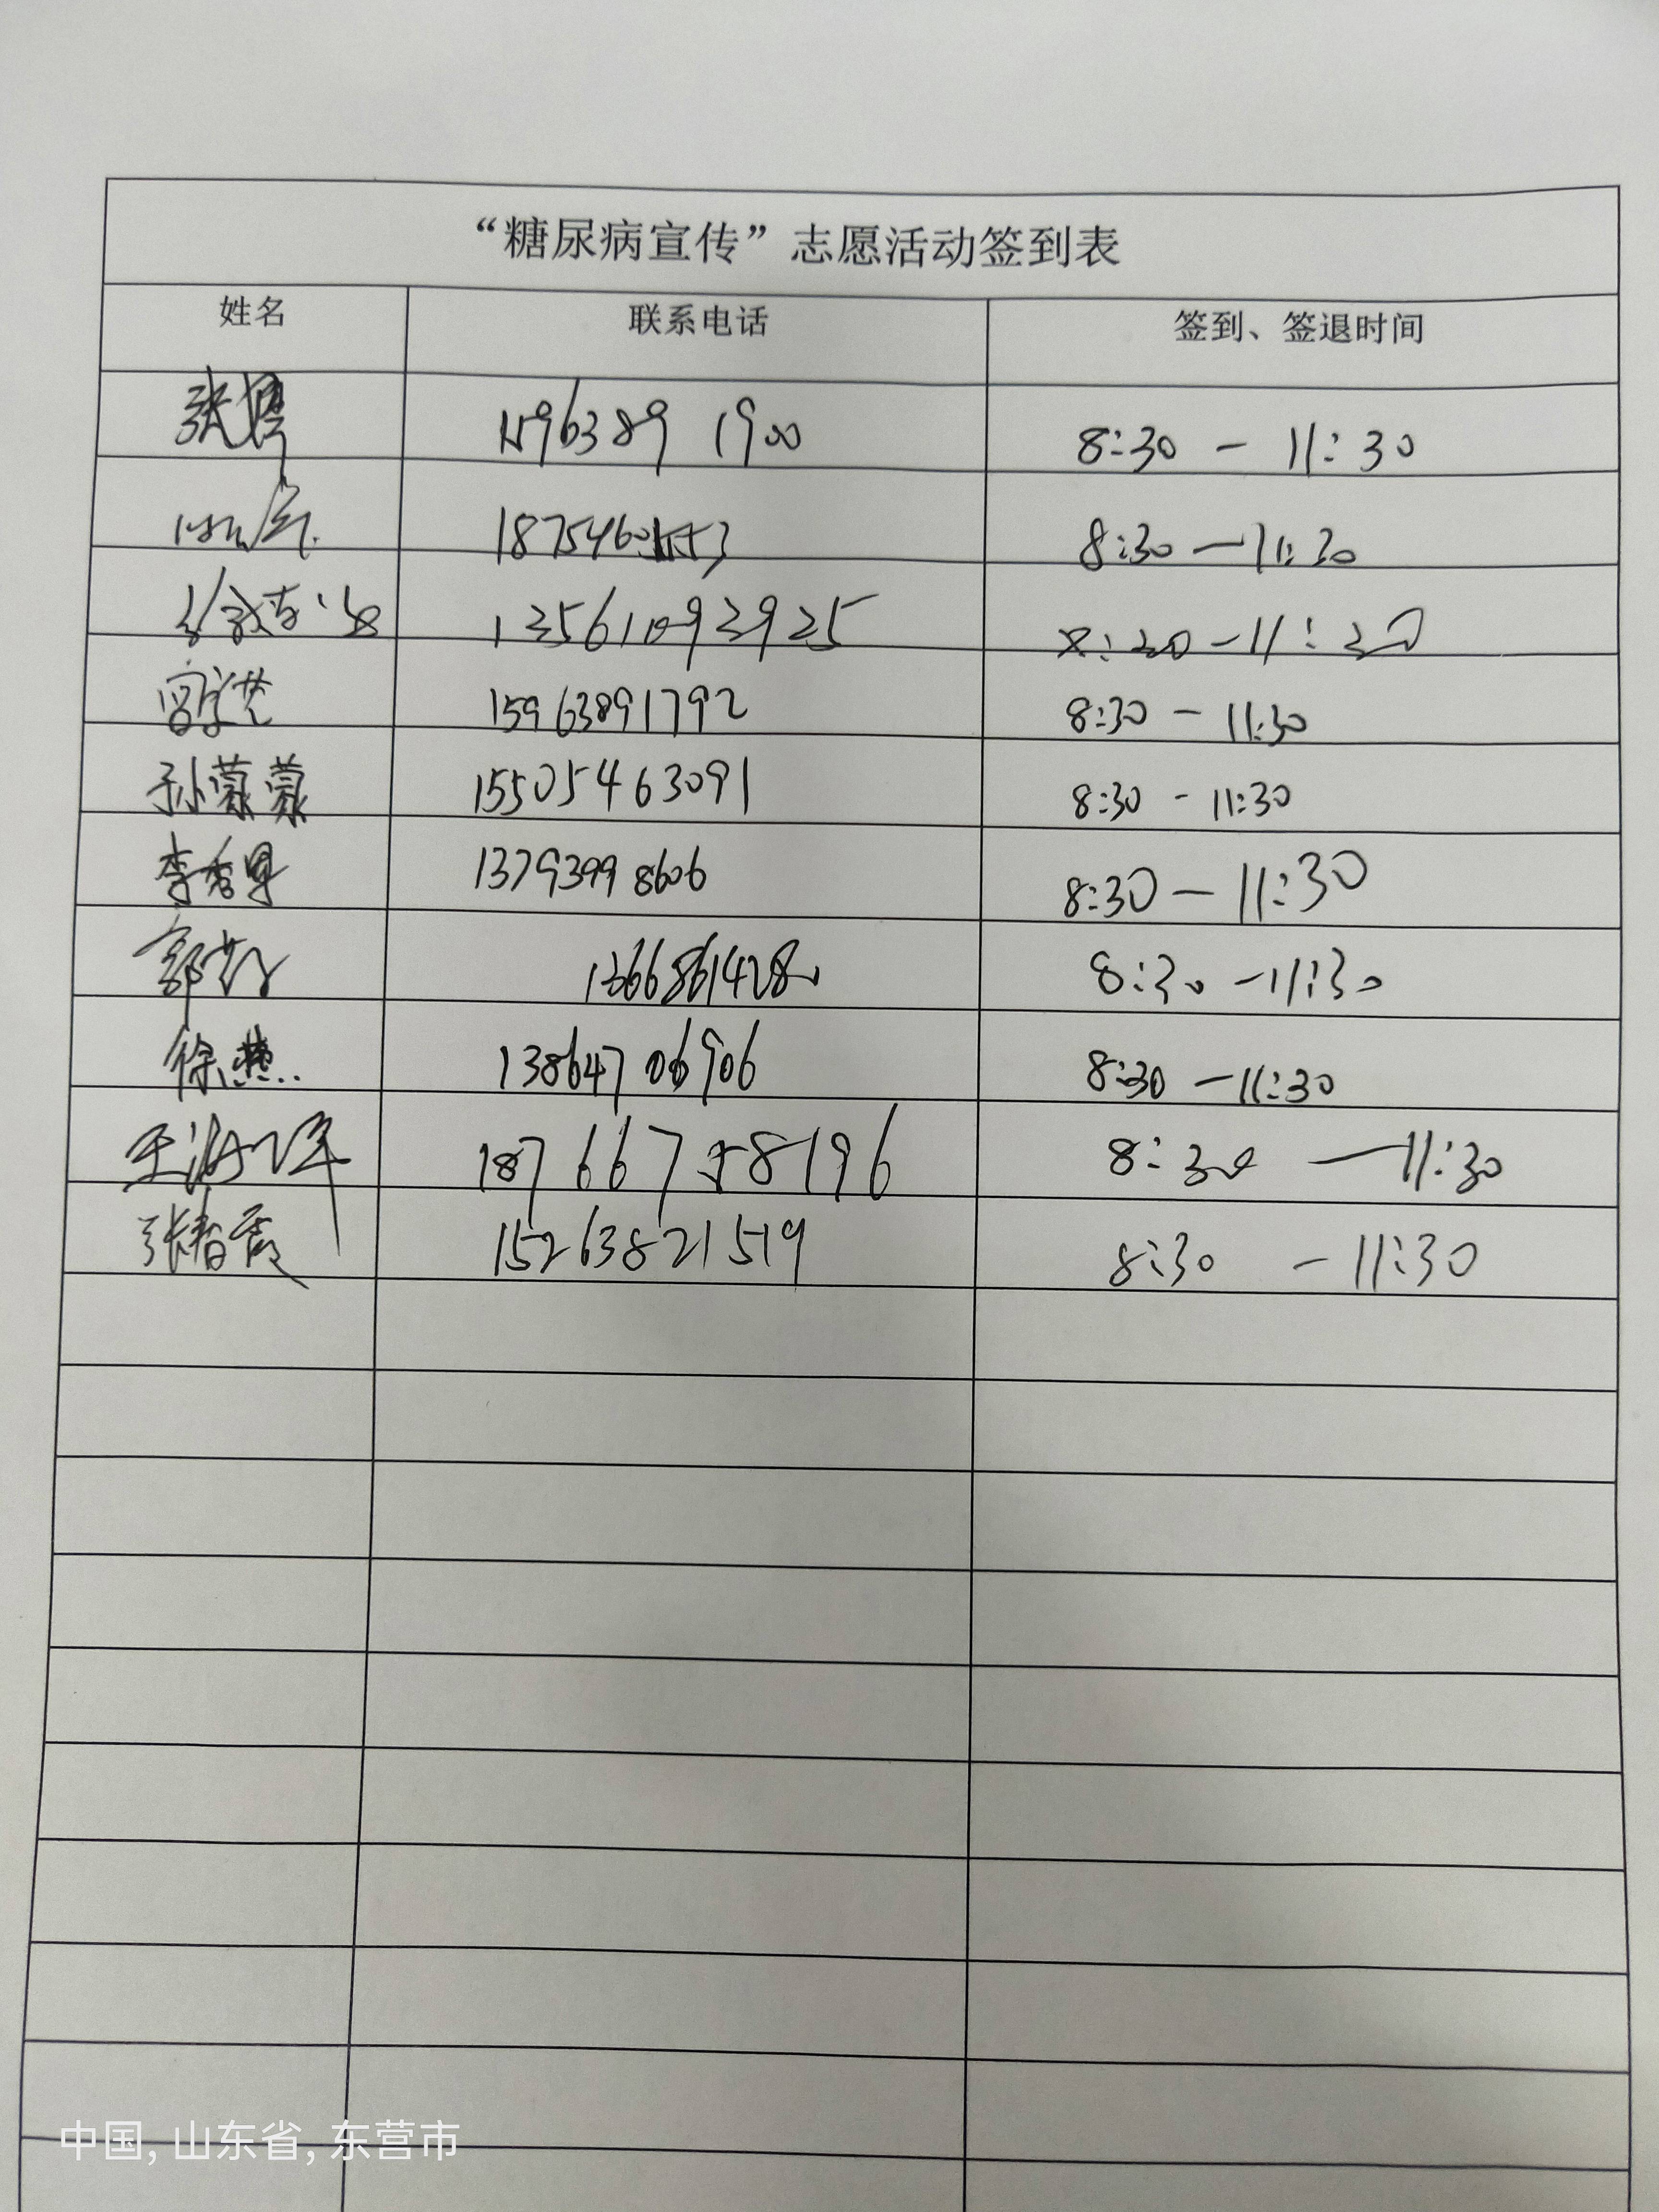 “糖尿病宣传”志愿活动签到表
姓名 联系电话 签到、签退时间
张 1900 8:30 - 11:30
8:30 - 11:30
13561093925 8:30 - 11:30
15963891792 8:30 - 11:30
孙蒙蒙 15505463091 8:30 - 11:30
李秀 13793998606 8:30 - 11:30
郭 8:30 - 11:30
徐燕 13864706906 8:30 - 11:30
王海军 18766758196 8:30 - 11:30
张春霞 15263821519 8:30 - 11:30
中国, 山东省, 东营市